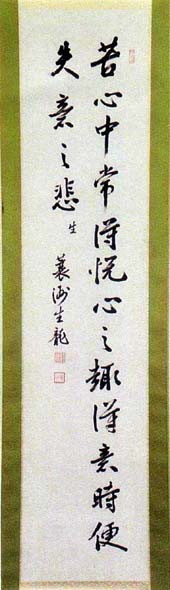 苦心中常得悦心之趣得意時便
失意之悲 生
蓑洲生龍